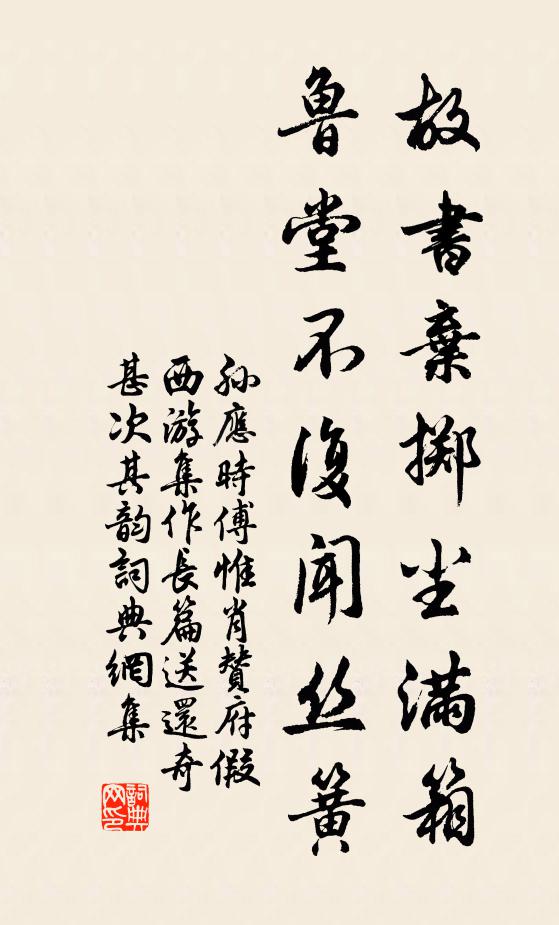 故書棄擲尘滿箱
魯堂不復闻丝簧
孙應時傅惟肖贊府假
西游集作長篇送還奇
甚次其韵詞典網集
詞典
网印